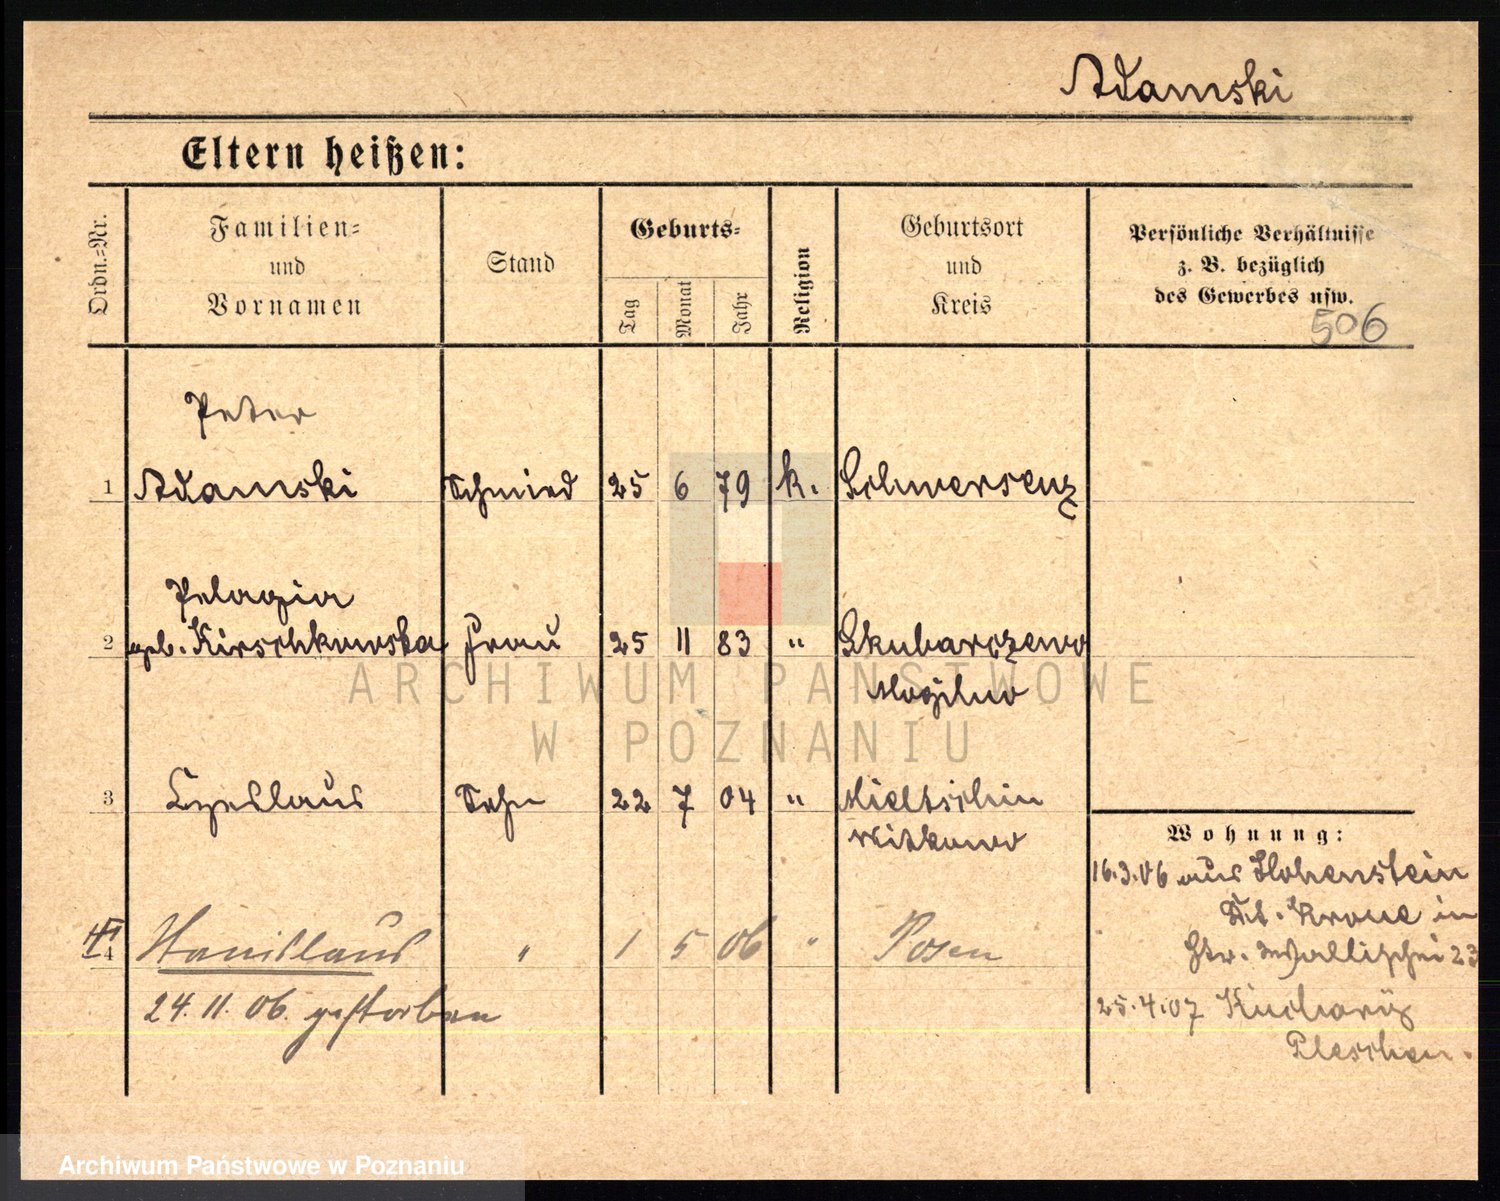 Adamski
Eltern heißen:
Ordn.=Nr.
Familien=
und
Vornamen
Stand
Geburts=
Tag
Monat
Jahr
Religion
Geburtsort
und
Kreis
Persönliche Verhältnisse
z. B. bezüglich
des Gewerbes usw.
506
Peter
1 Adamski Schmied 25 6 79 k. Schwersenz
Pelagia
2 geb. Kirschkowska Frau 25 11 83 " Skubarczewo
Mogilno
3 Czeslaus Sohn 22 7 04 " Mieltschin
Witkowo
Wohnung:
16.3.06 aus Hohenstein
Krone in
4 Stanislaus " 1 5 06 " Posen
Str. Wallischei 23
24.11.06. gestorben
25.4.07 Kucharz
Pleschen.
ARCHIWUM PAŃSTWOWE
W POZNANIU
Archiwum Państwowe w Poznaniu